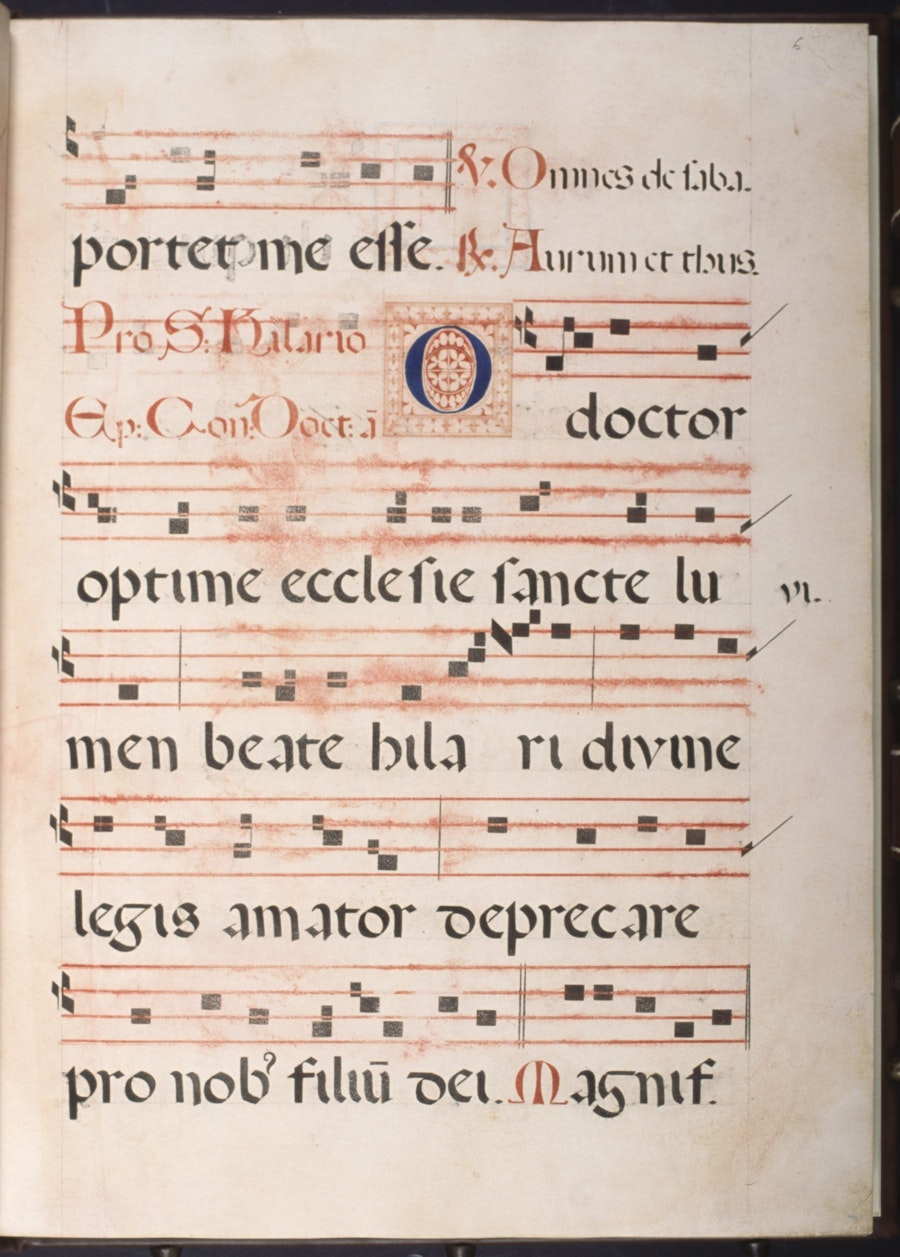 6
℣. Omnes de saba.
portet me esse. ℟. Aurum et thus.
Pro S: Hilario
Ep: Con: Doct: ā
O doctor
optime ecclesie sancte lu
vi.
men beate hila ri divine
legis amator deprecare
pro nobꝰ filiū dei. Magnif.